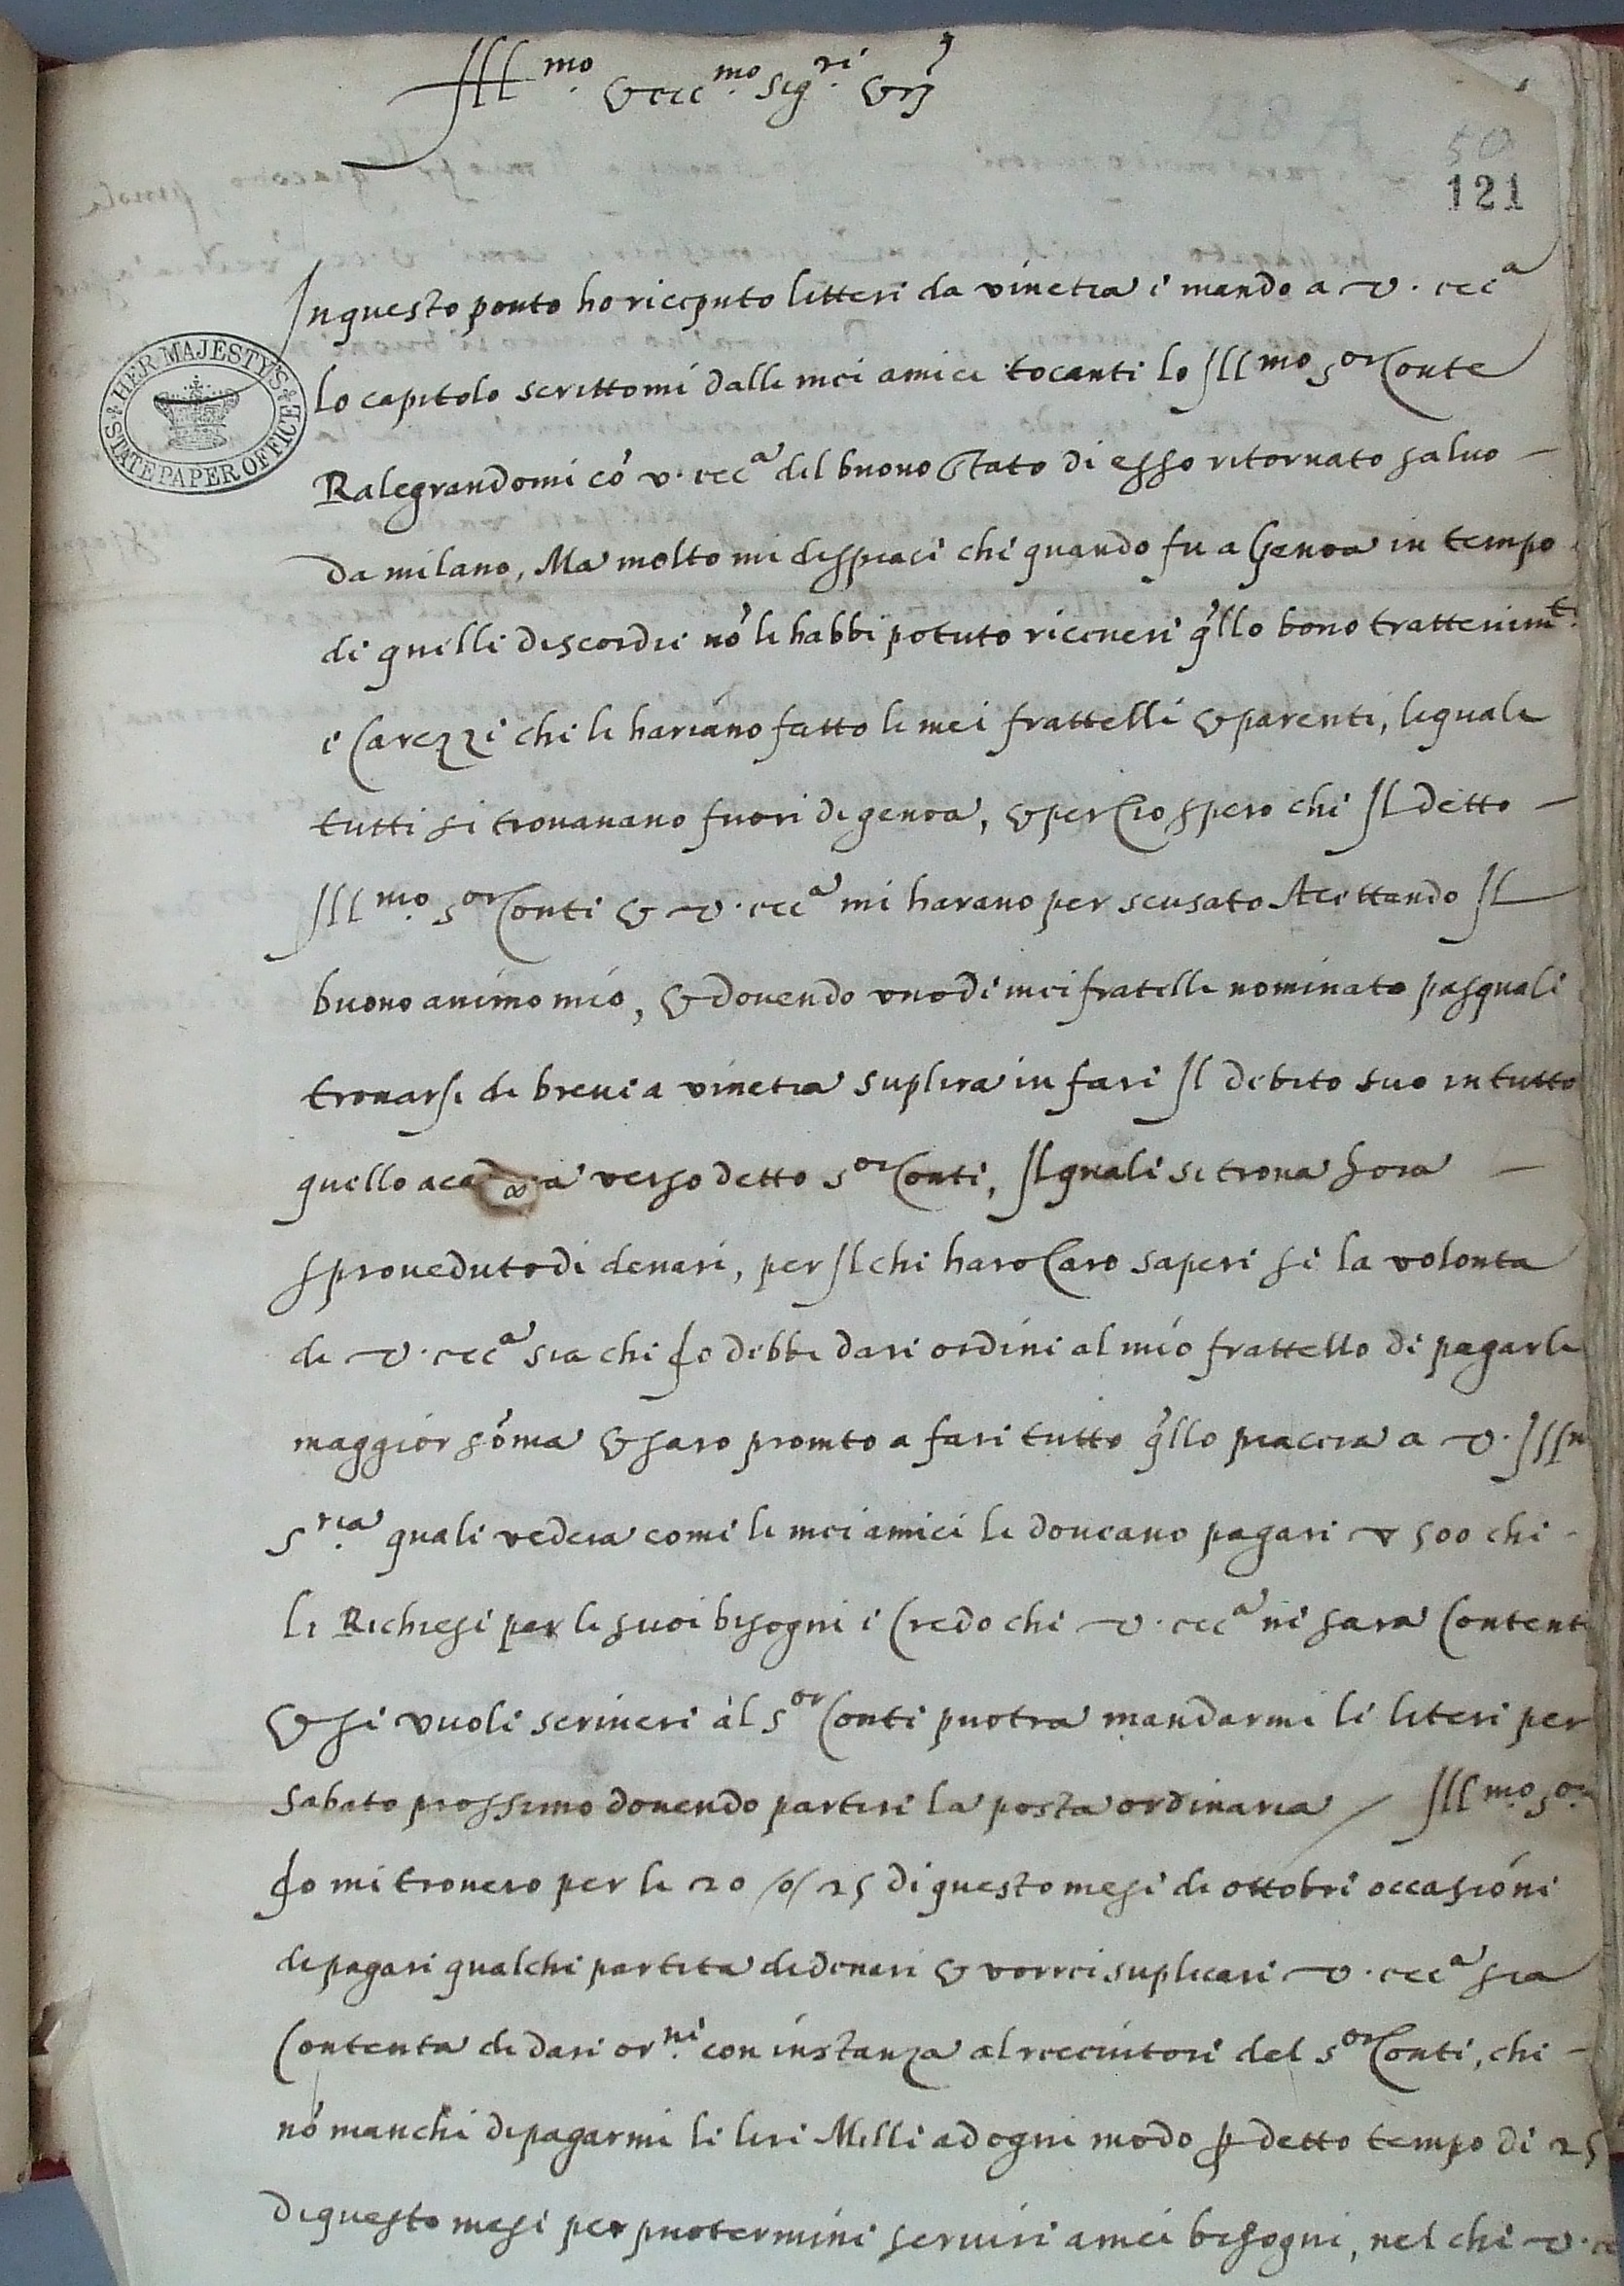 Ill.mo & ecc.mo Sig.ri
50
121
HER MAJESTY'S STATE PAPER OFFICE
In questo ponto ho riceputo litteri da vinetia i mando a v. ecc.a
lo capitolo scrittomi dalli mei amici tocanti lo Ill.mo s.or Conte
Ralegrandomi cō v. ecc.a del buono stato di esso ritornato salvo —
da milano, Ma molto mi dispiaci chi quando fu a Genoa in tempo
di quelli discordii nō li habbi potuto riceveri q̃llo bono trattenim.to
i Carezzi chi li hariano fatto li mei frattelli & parenti, li quali
tutti si trovavano fuori di genoa, & per Cio spero chi Il detto —
Ill.mo s.or Conti & v. ecc.a mi harano per scusato Acettando Il
buono animo mio, & dovendo uno di mei fratelli nominato pasquali
trovarsi di brevi a vinetia suplira in fari Il debito suo in tutto
quello aca a verso detto s.or Conti, Il quali si trova hora —
sproveduto di denari, per Il chi haro Caro saperi si la volonta
di v. ecc.a sia chi Io debbi dari ordini al mio frattello di pagarli
maggior sōma & saro promto a fari tutto q̃llo piaccia a v. Ill.m
s.ria quali vedera comi li mei amici li doveano pagari v 500 chi —
li Richiesi per li suoi bisogni i Credo chi v. ecc.a ni sara Content
& si vuoli scriveri al s.or Conti puotra mandarmi li literi per
sabato prossimo dovendo partiri la posta ordinaria / Ill.mo s.or
Io mi trovero per li 20 /o/ 25 di questo mesi di ottobri occasioni
di pagari qualchi partita di denari & vorrei suplicari v. ecc.a sia
Contenta di dari or.ni con instanza al recevitori del s.or Conti, chi —
nō manchi di pagarmi li liri Milli ad ogni modo ꝑ detto tempo di 25
di questo mesi per puotermini serviri a mei bisogni, nel chi v.